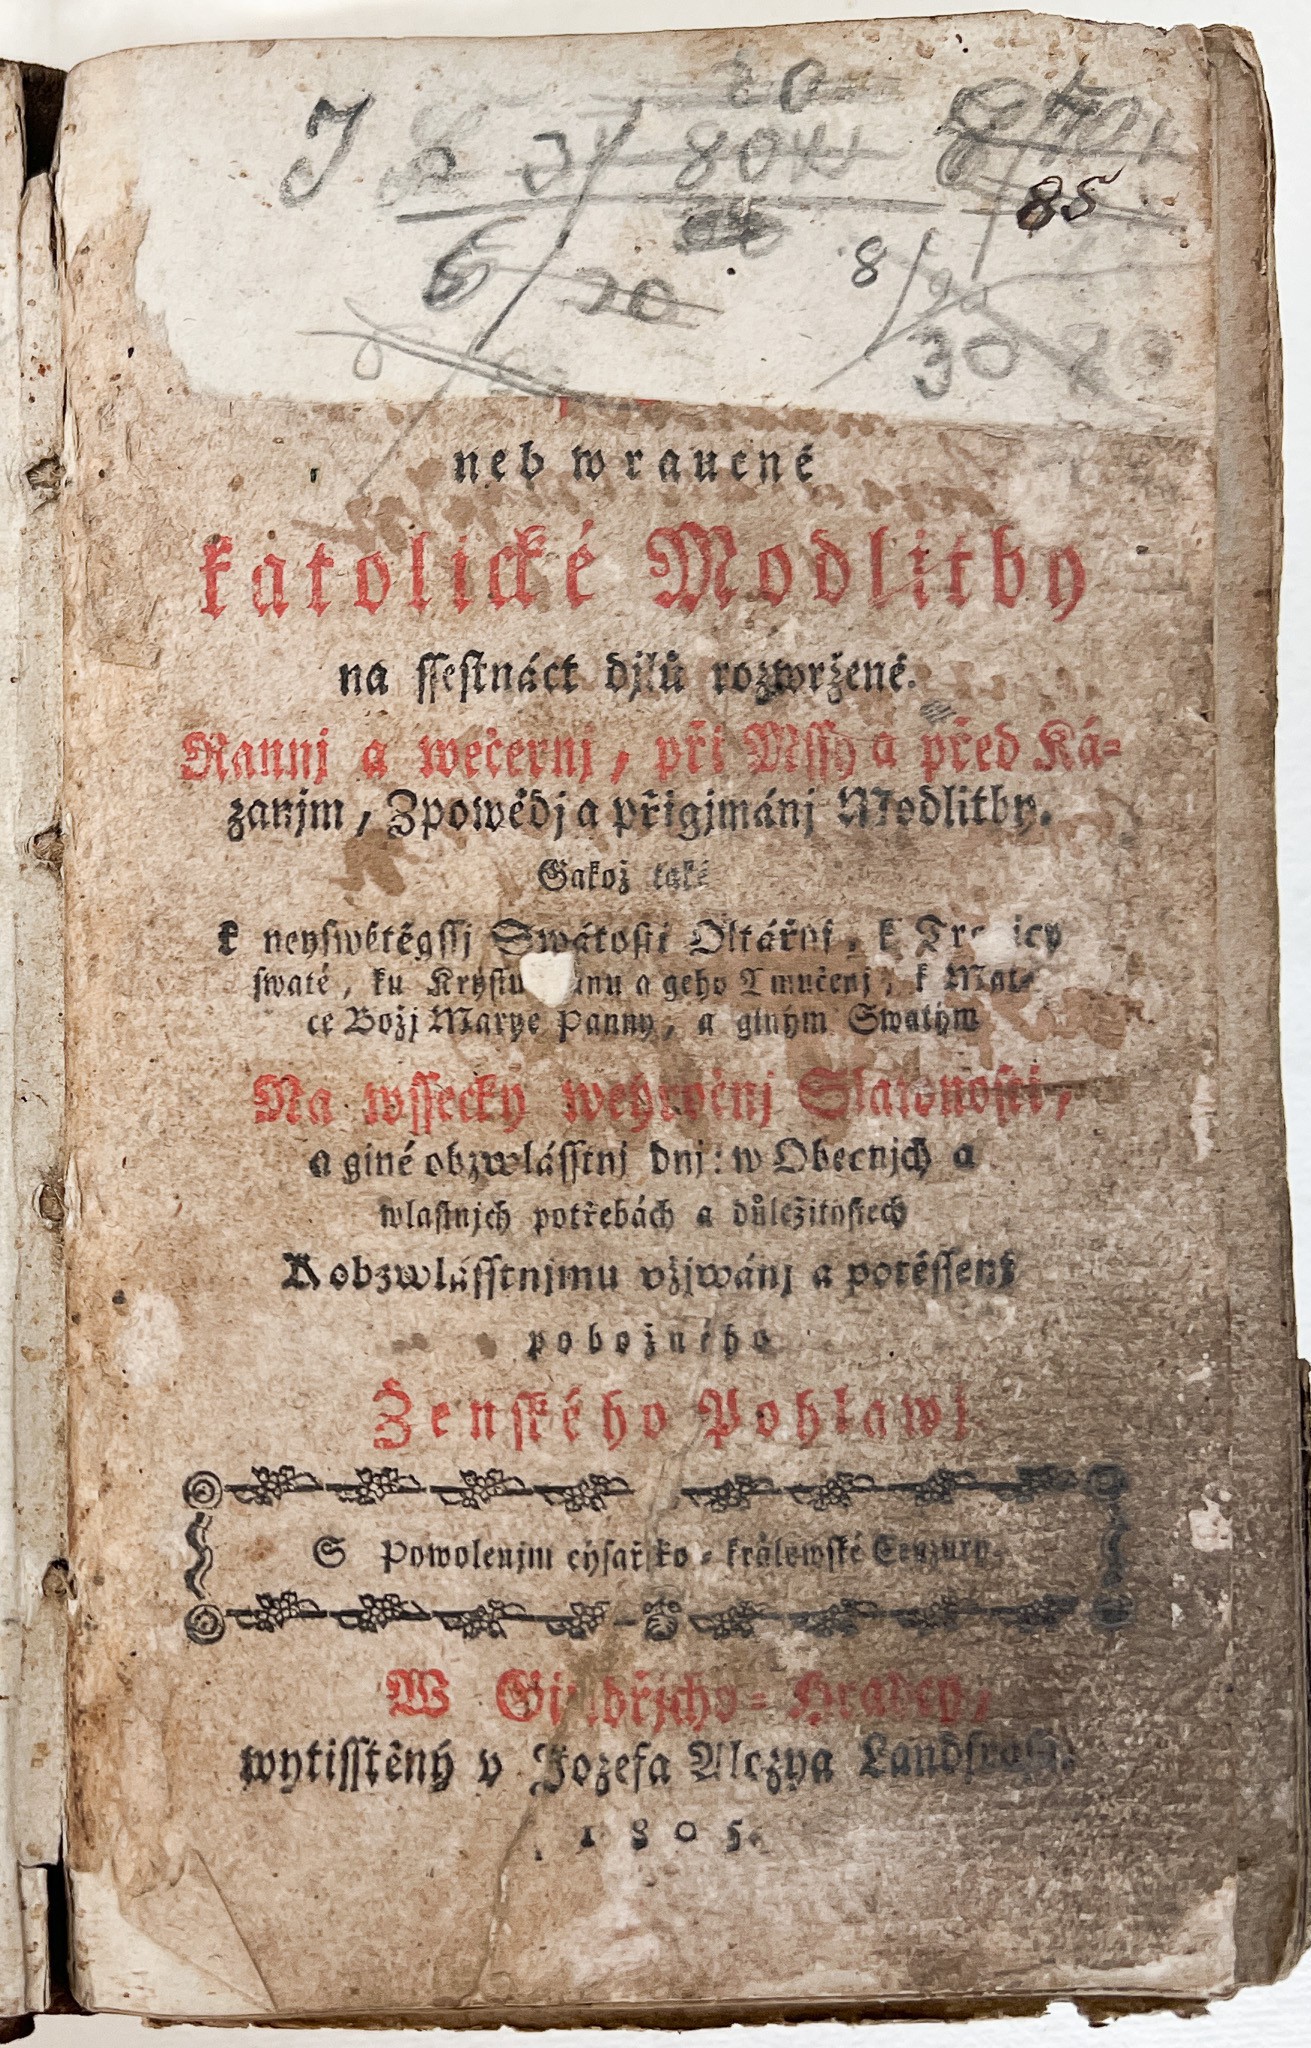 J
8041
85
6
20
8
30
neb wraucné
katolické Modlitby
na ssestnáct djlů rozwržené.
Rannj a wečernj, při Mssy a před Ká-
zanjm, Zpowědj a přigjmánj Modlitby.
Gakož také
k neyswětěgssj Swátosti Oltářnj, k
swaté, ku Krystu a geho mučenj, k Mat-
ce Božj Marye Panny, a giným Swatým
Na wssecky weyročnj Slawnosti,
a giné obzwlásstnj dnj: w Obecnjch a
wlastnjch potřebách a důležitostech
K obzwlásstnjmu vžjwánj a potěssenj
pobožného
Ženského Pohlawj
S Powolenjm cýsařsko-králewské Cenzury.
W Gindřjcho-Hradcy,
wytisstěný v Jozefa Alozya Landfrasa.
1805.